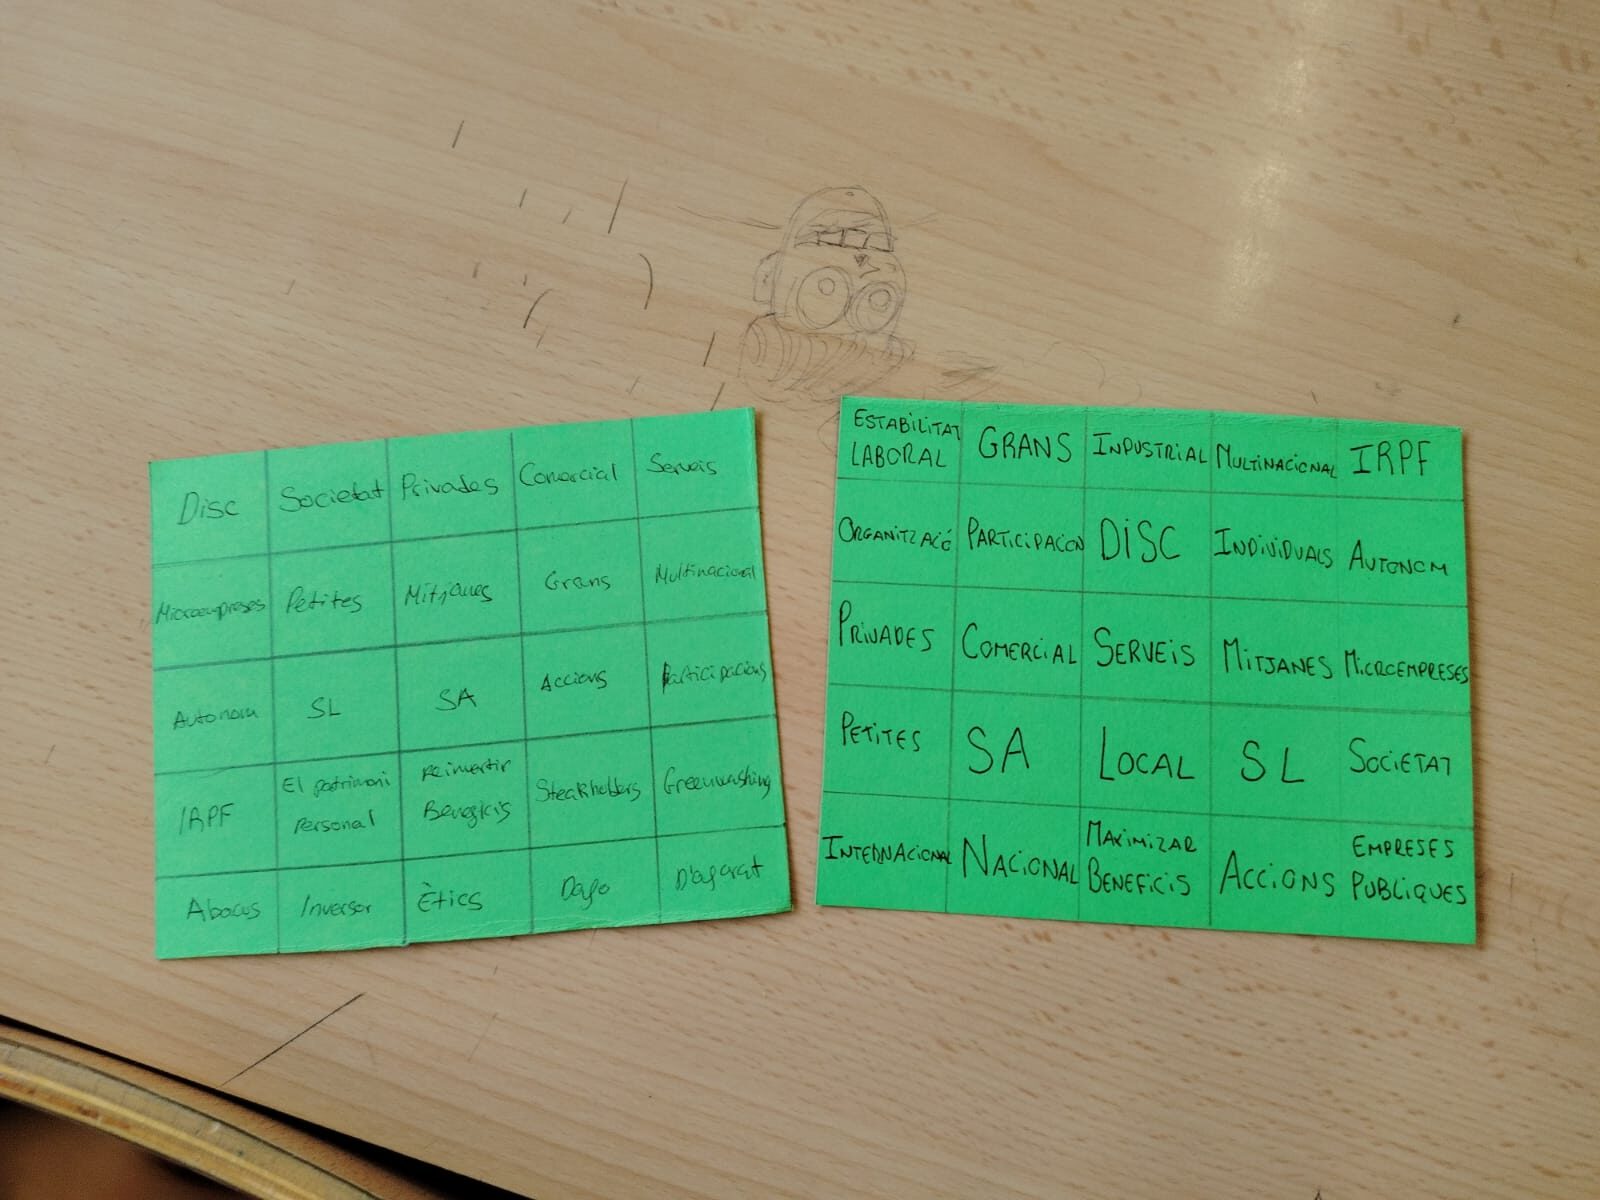 Disc Societat Privades Comercial Serveis
Microempreses Petites Mitjanes Grans Multinacional
Autonom SL SA Accions Participacions
IRPF El patrimoni Personal Reinvertir Beneficis Steakholders Greenwashing
Abacus Inversor Ètics Dafo D'aquarat
ESTABILITAT LABORAL GRANS INDUSTRIAL MULTINACIONAL IRPF
ORGANITZACIÓ PARTICIPACION DISC INDIVIDUALS AUTONOM
PRIVADES COMERCIAL SERVEIS MITJANES MICROEMPRESES
PETITES SA LOCAL SL SOCIETAT
INTERNACIONAL NACIONAL MAXIMIZAR BENEFICIS ACCIONS EMPRESES PUBLIQUES